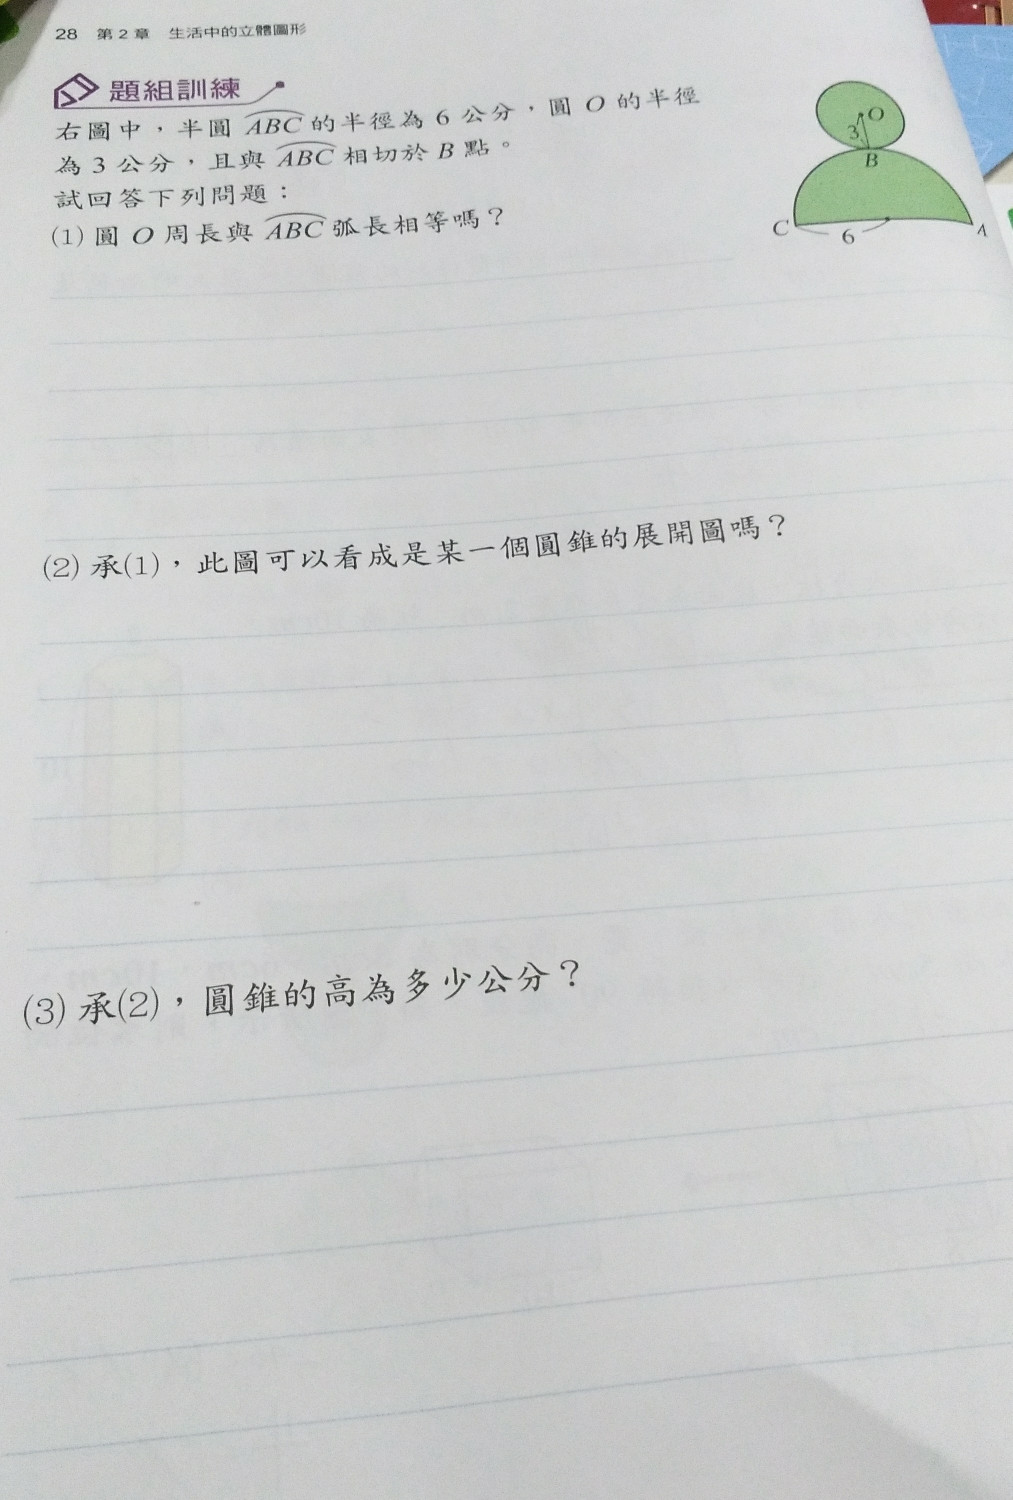 28 第2章 生活中的立體圖形
題組訓練
右圖中，半圓 ABC 的半徑為 6 公分，圓 O 的半徑
為 3 公分，且與 ABC 相切於 B 點。
試回答下列問題：
(1) 圓 O 周長與 ABC 弧長相等嗎？
O
3
B
C
6
A
(2) 承(1)，此圖可以看成是某一個圓錐的展開圖嗎？
(3) 承(2)，圓錐的高為多少公分？